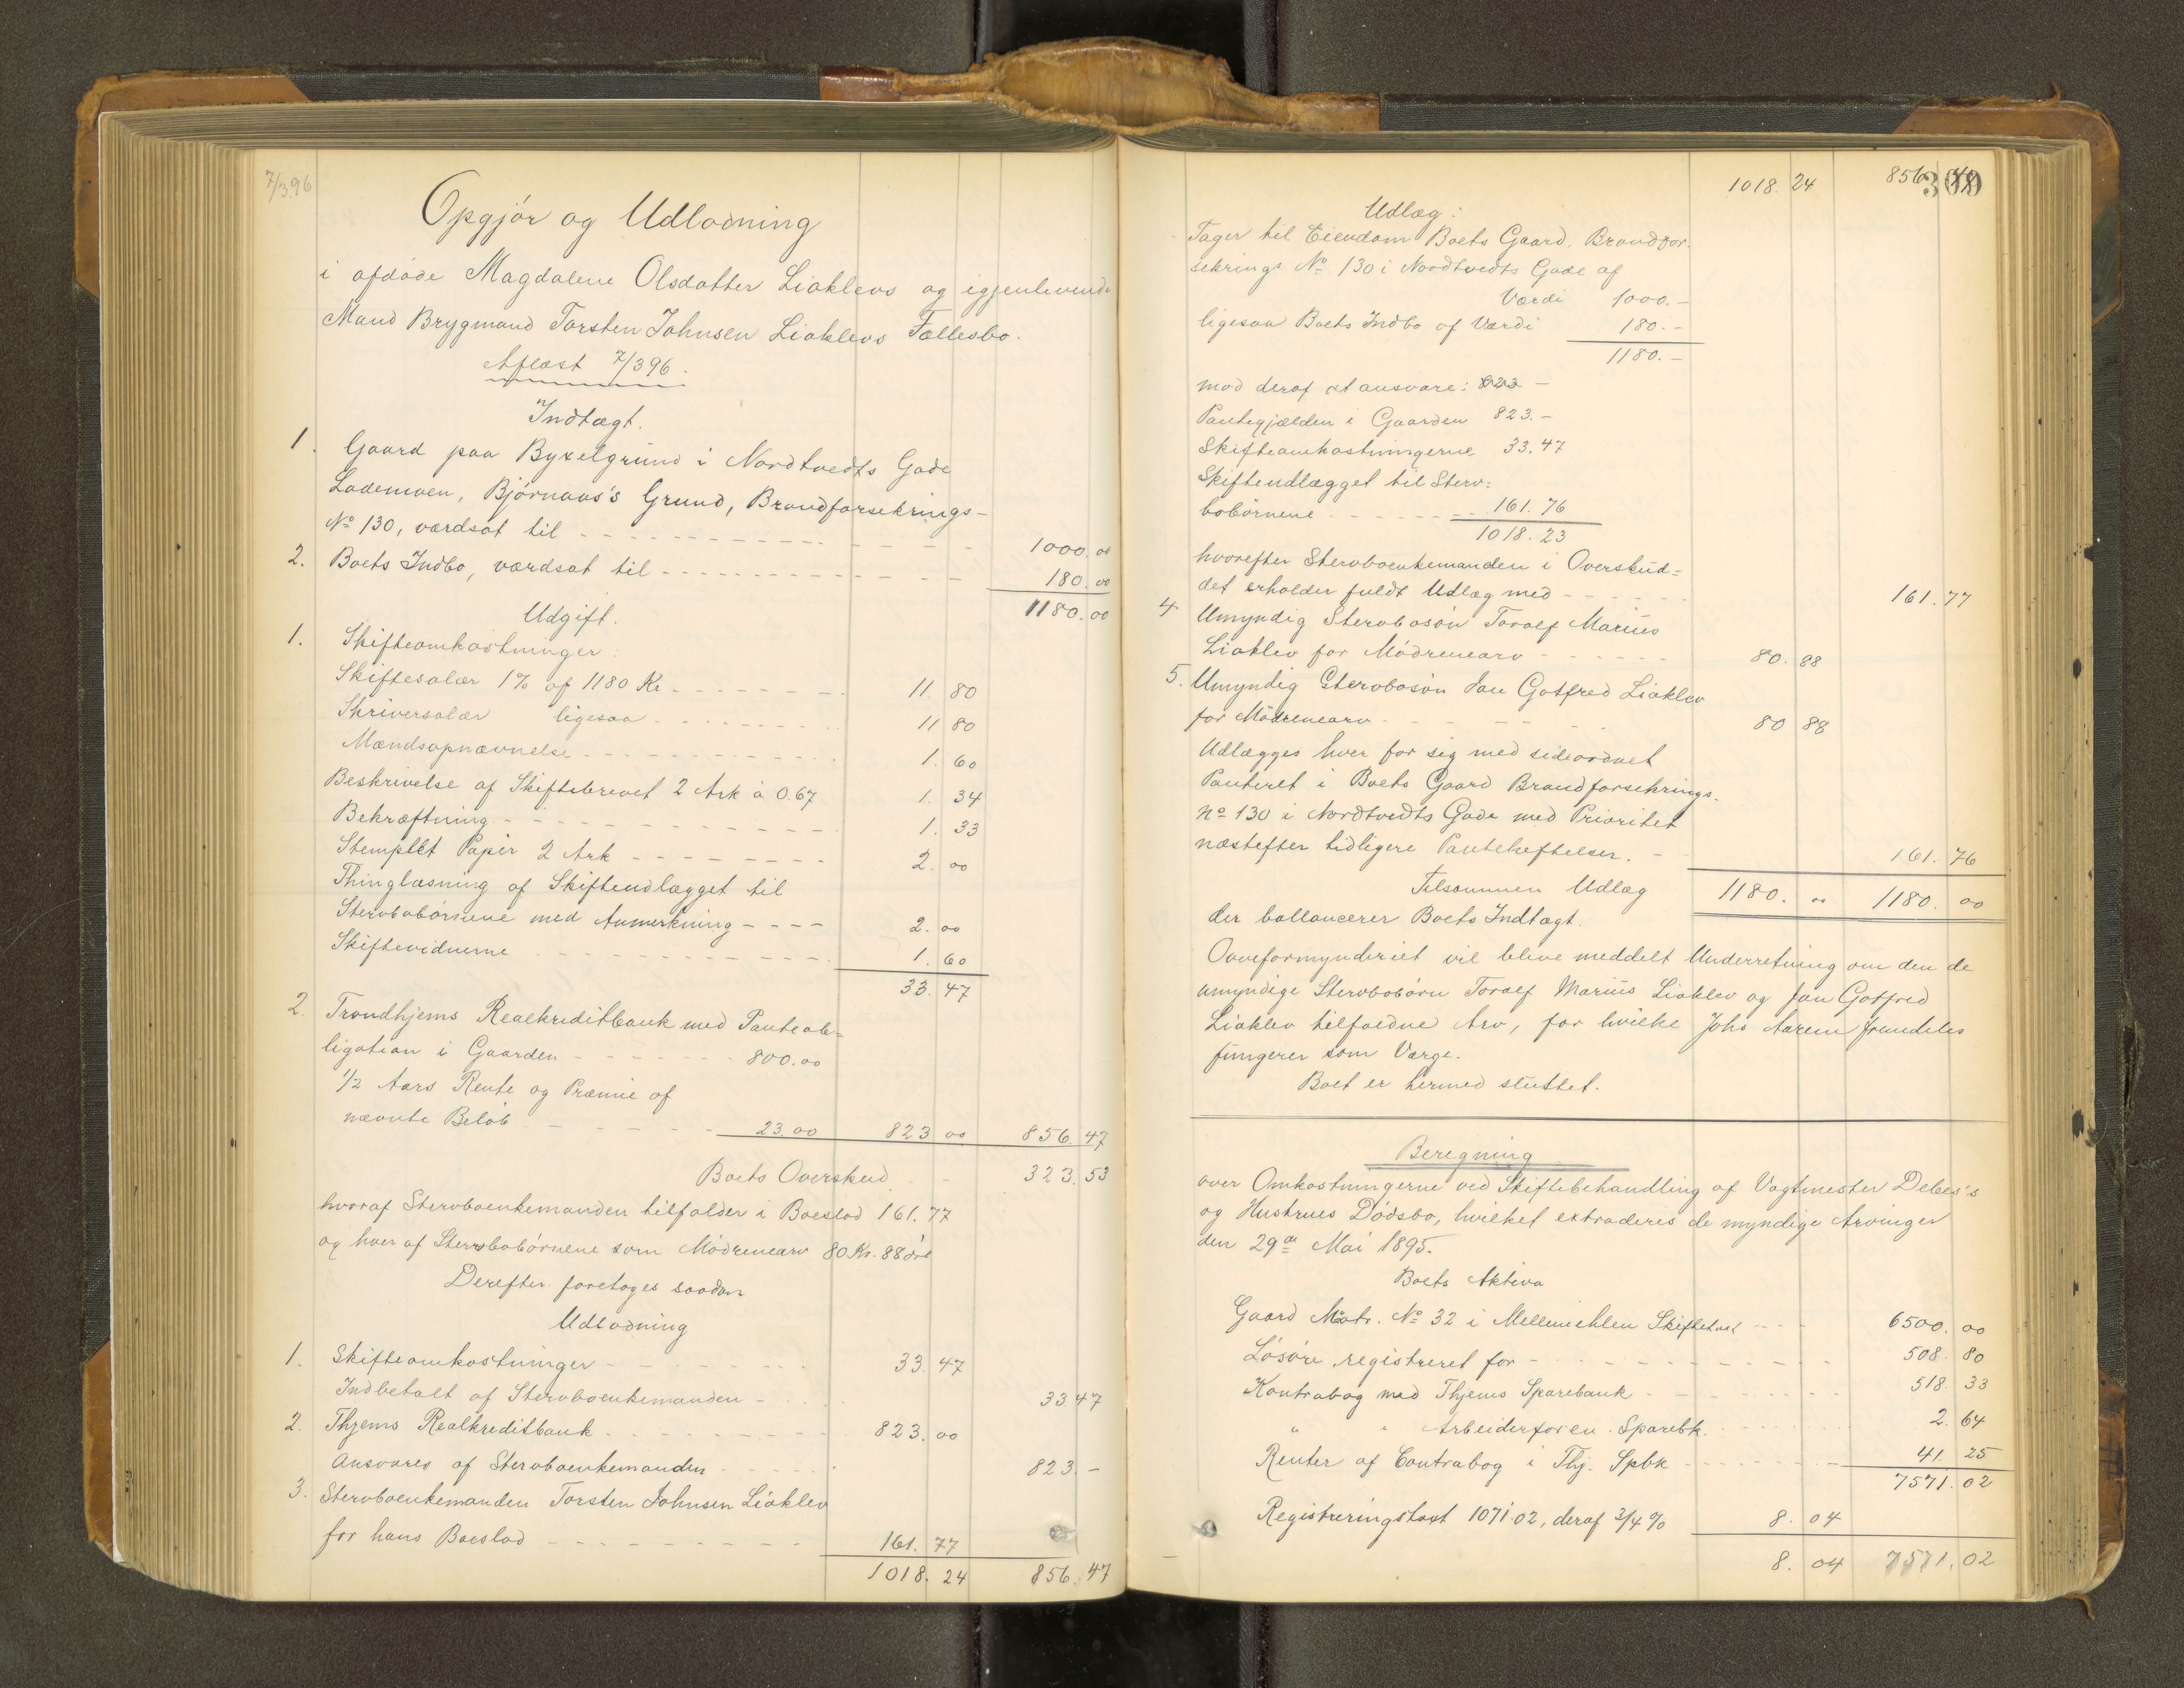 7/396
Opgjör og Udlodning
i afdöde Magdalene Olsdatter Liaklevs og igjenlevende
Mand Brygmand Torsten Johnsen Liaklevs Fællesbo.
Aflæst 7/396.
Indtægt.
1. Gaard paa Byxelgrund i Nordtvedts Gade
Lademoen, Björnaas's Grund, Brandforsekrings-
No 130, værdsat til 1000.00
2. Boets Indbo, værdsat til 180.00
1180.00
Udgift.
1. Skifteomkostninger:
Skiftesalær 1% af 1180 Kr. 11.80
Skriversalær ligesaa 11 80
Mændsopnævnelse 1.60
Beskrivelse af Skiftebrevet 2 Ark à 0.67 1.34
Bekræftning 1.33
Stemplet Papir 2 Ark 2.00
Thinglæsning af Skifteudlægget til
Stervbobörnene med Anmerkning 2.00
Skiftevidnerne 1.60
33.47
2. Trondhjems Realkreditbank med Panteob=
ligation i Gaarden 800.00
1/2 Aars Rente og Præmie af
nævnte Belöb 23.00 823 00 856.47
Boets Overskud 323.53
hvoraf Stervboenkemanden tilfalder i Boeslod 161.77
og hver af Stervbobörnene som Mödrenearv 80 Kr. 88 öre
Derefter foretoges saadan
Udlodning
1. Skifteomkostninger 33.47
Indbetalt af Stervboenkemanden 33.47
2. Thjems Realkreditbank 823.00
Ansvares af Stervboenkemanden 823.-
3. Stervboenkemanden Torsten Johnsen Liaklev
for hans Boeslod 161.77
1018.24 856.47
1018.24 856.47
Udlæg:
Tager til Eiendom Boets Gaard, Brandfor-
sekrings No 130 i Nordtvedts Gade af
Værdi 1000.-
ligesaa Boets Indbo af Værdi 180.-
1180.-
mod deraf at ansvare: 823 -
Pantegjælden i Gaarden 823.-
Skifteomkostningerne 33.47
Skifteudlægget til Sterv=
bobörnene 161.76
1018.23
hvorefter Stervboenkemanden i Overskud=
det erholder fuldt Udlæg med 161.77
4 Umyndig Stervbosön Toralf Marius
Liaklev for Mödrenearv 80.88
5. Umyndig Stervbosön Jan Gotfred Liaklev
for Mödrenearv 80 88
Udlægges hver for sig med sideordnet
Panteret i Boets Gaard Brandforsekrings-
No 130 i Nordtvedts Gade med Prioritet
næstefter tidligere Panteheftelser. 161.76
Tilsammen Udlæg 1180.00 1180.00
der ballancerer Boets Indtægt.
Overformynderiet vil blive meddelt Underretning om den de
umyndige Stervbobörn Toralf Marius Liaklev og Jan Gotfred
Liaklev tilfaldne Arv, for hvilke Johs Aarem
fungerer som Værge.
Boet er hermed sluttet.
Beregning
over Omkostningerne ved Skiftebehandling af Vagtmester Debes's
og Hustrues Dödsbo, hvilket extraderes de myndige Arvinger
den 29de Mai 1895.
Boets Aktiva
Gaard Matr. No 32 i Mellemihlen Skiftetaxt 6500.00
Lösöre registreret for 508.80
Kontrabog med Thjems Sparebank 518.33
" " Arbeiderforen. Sparebk. 2.64
Renter af Contrabog i Thj. Spbk 41.25
7571.02
Registreringstaxt 1071.02, deraf 3/4 % 8.04
8.04 7571.02